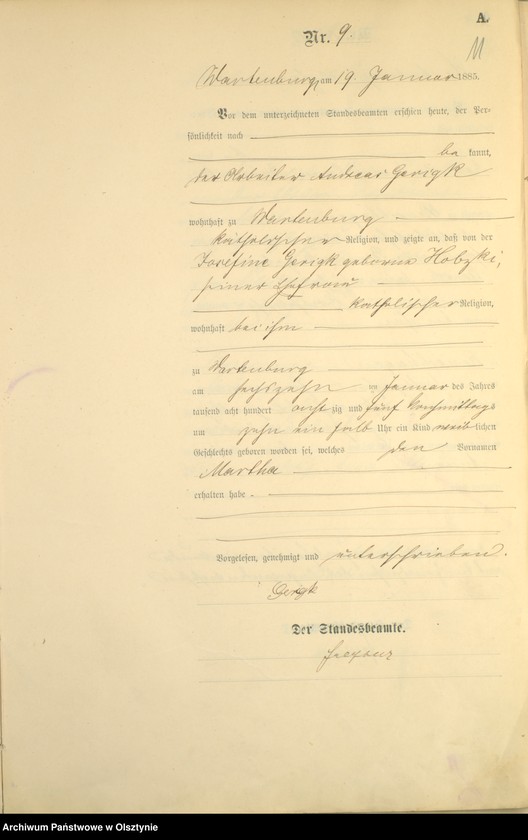 A.
Nr. 9.
11
Wartenburg, am 19. Januar 1885.
Vor dem unterzeichneten Standesbeamten erschien heute, der Per-
sönlichkeit nach
be kannt,
der Arbeiter Andreas Gerigk
wohnhaft zu Wartenburg
katholischer Religion, und zeigte an, daß von der
Josefine Gerigk geborene
seiner Ehefrau
katholischer Religion,
wohnhaft bei ihm
zu Wartenburg
am sechszehn ten Januar des Jahres
tausend acht hundert acht zig und fünf Vormittags
um zehn ein halb Uhr ein Kind weib lichen
Geschlechts geboren worden sei, welches den Vornamen
Martha
erhalten habe.
Vorgelesen, genehmigt und unterschrieben.
Gerigk
Der Standesbeamte.
Archiwum Państwowe w Olsztynie